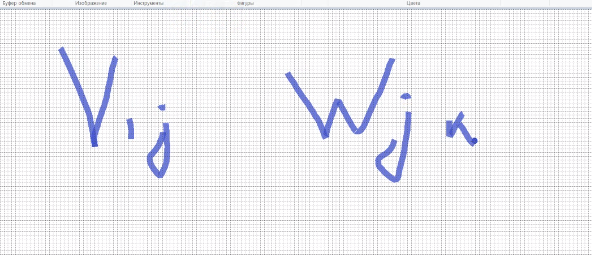 Буфер обмена Изображение Инструменты Фигуры Цвета
V ij W jk